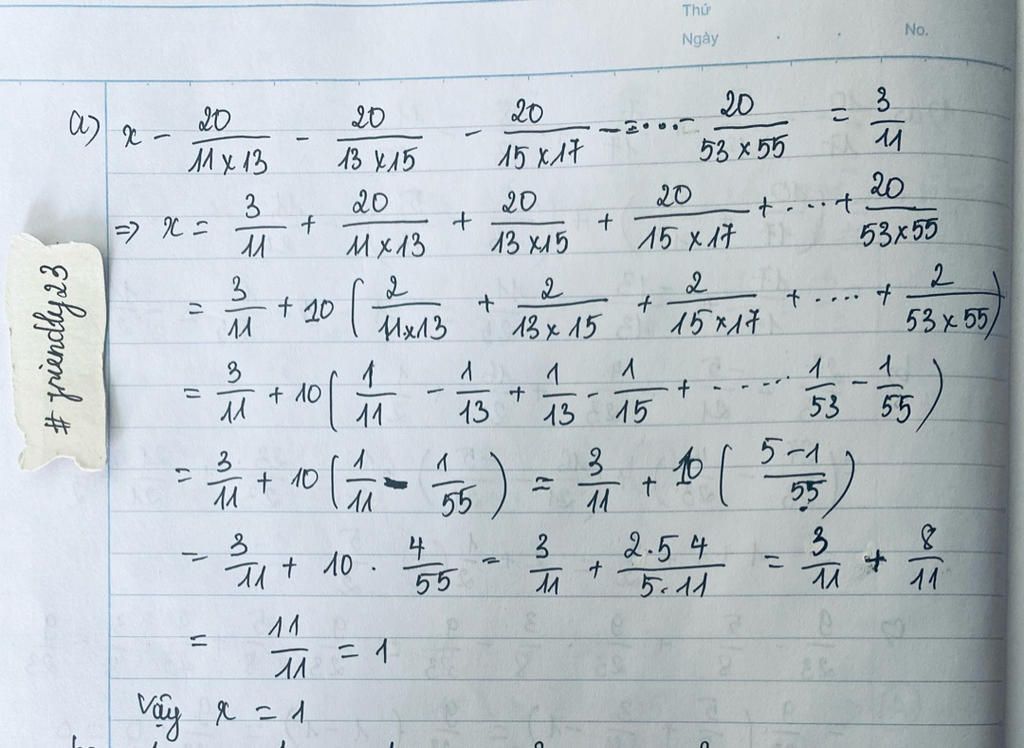 Thứ
Ngày . . No.
a) x - 20/(11×13) - 20/(13×15) - 20/(15×17) - ... - 20/(53×55) = 3/11
=> x = 3/11 + 20/(11×13) + 20/(13×15) + 20/(15×17) + ... + 20/(53×55)
= 3/11 + 10 ( 2/(11×13) + 2/(13×15) + 2/(15×17) + .... + 2/(53×55) )
= 3/11 + 10 ( 1/11 - 1/13 + 1/13 - 1/15 + ..... 1/53 - 1/55 )
= 3/11 + 10 ( 1/11 - 1/55 ) = 3/11 + 10 ( (5-1)/55 )
= 3/11 + 10 . 4/55 = 3/11 + (2.5 4)/(5.11) = 3/11 + 8/11
= 11/11 = 1
Vậy x = 1
# friendly23